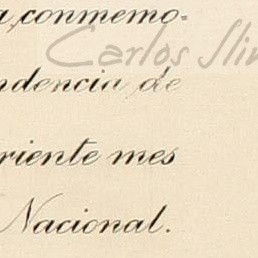 a, conmemo=
Carlos Slim
ndencia de
riente mes
Nacional.